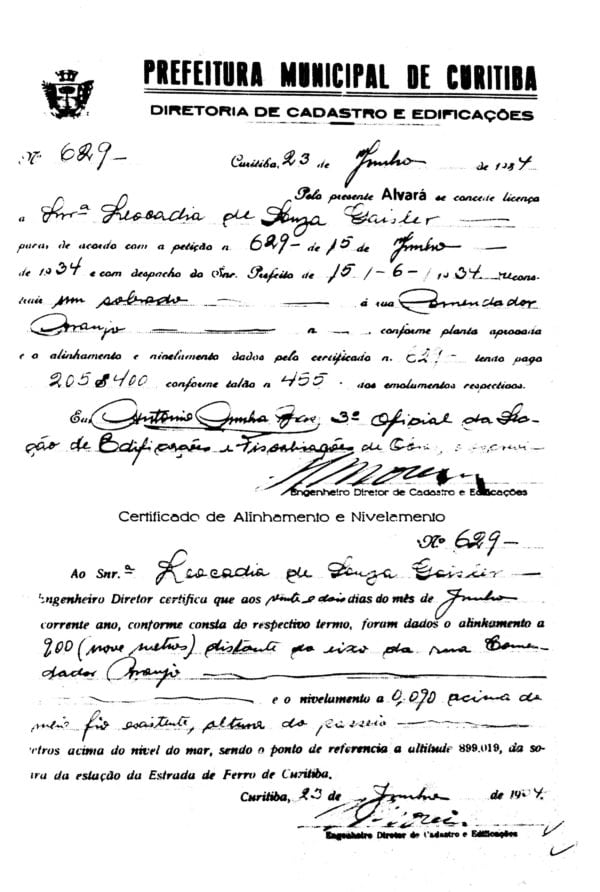 PREFEITURA MUNICIPAL DE CURITIBA
DIRETORIA DE CADASTRO E EDIFICAÇÕES
Nº 629- Curitiba, 23 de Junho de 1934
Pelo presente Alvará se concede licença
a Snrª Leocadia de Souza Gaisler
para, de acordo com a petição n. 629- de 15 de Junho
de 1934 e com despacho do Snr. Prefeito de 15/-6-/1934 recons
truir um sobrado á rua Comendador
Araujo n conforme planta aprovada
e o alinhamento e nivelamento dados pelo certificado n. 629- tendo pago
205$400 conforme talão n 455- aos emolumentos respectivos.
Eu, Antonio Cunha 3º Oficial da Se-
ção de Edificações e Fiscalizações de
Engenheiro Diretor de Cadastro e Edificações
Certificado de Alinhamento e Nivelamento
Nº 629-
Ao Snr.ª Leocadia de Souza Gaisler
Engenheiro Diretor certifica que aos vinte e dois dias do mês de Junho
corrente ano, conforme consta do respectivo termo, foram dados o alinhamento a
9,00 (nove metros) distante do eixo da rua Comen-
dador Araujo
e o nivelamento a 0,090 acima do
meio fio existente, altura do passeio
etros acima do nivel do mar, sendo o ponto de referencia a altitude 899,019, da so-
ira da estação da Estrada de Ferro de Curitiba.
Curitiba, 23 de Junho de 1934.
Engenheiro Diretor de Cadastro e Edificações